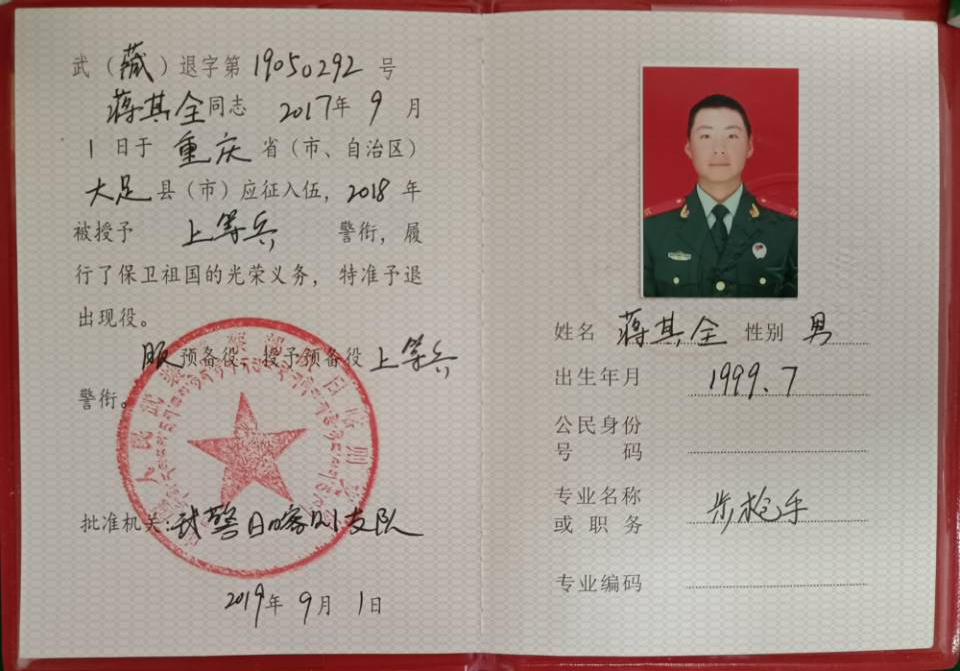 武（藏）退字第19050292号
蒋其全同志 2017年9月
1日于重庆省（市、自治区）
大足县（市）应征入伍，2018年
被授予 上等兵 警衔，履
行了保卫祖国的光荣义务，特准予退
出现役。
服预备役，授予预备役上等兵
警衔。
批准机关：武警日喀则支队
2019年9月1日
姓名 蒋其全 性别 男
出生年月 1999.7
公民身份
号 码
专业名称 步枪手
或 职 务
专业编码